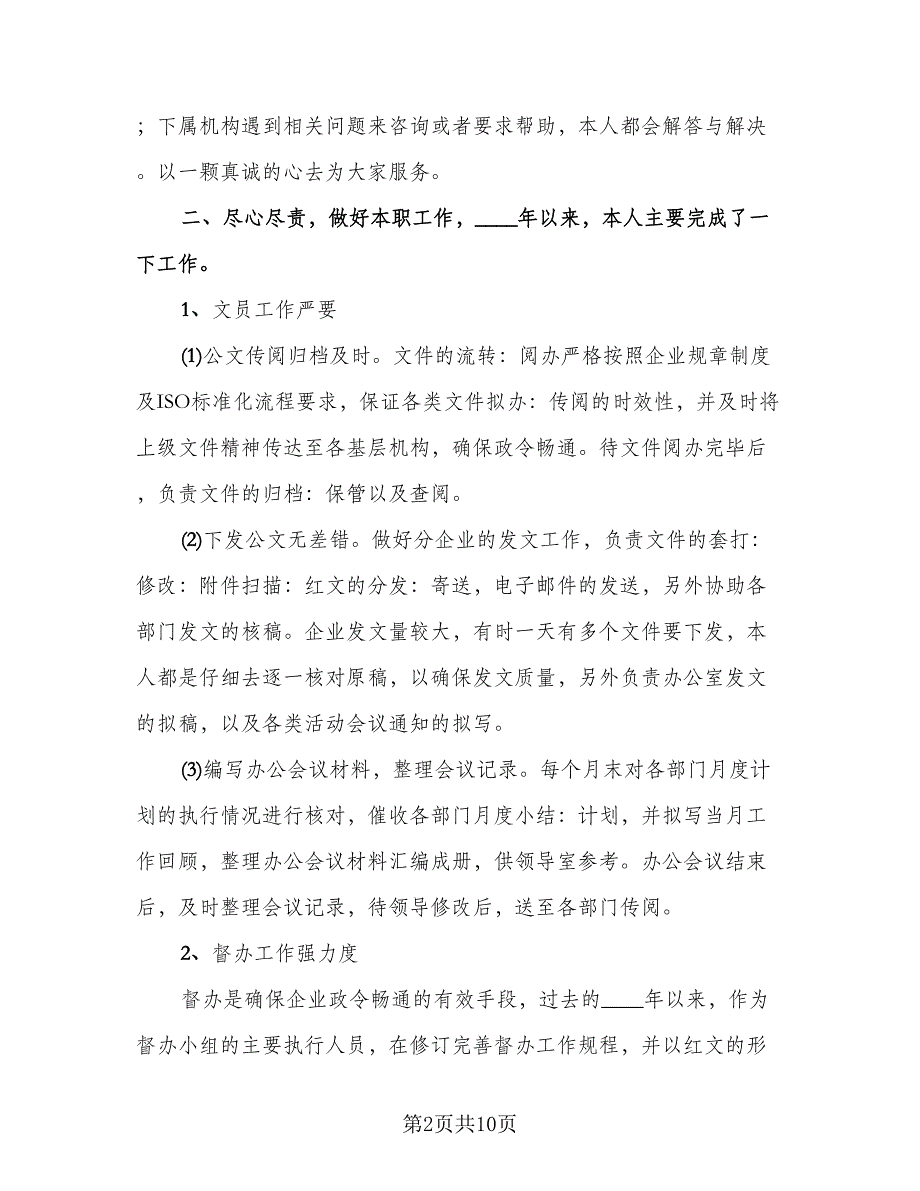 ；下属机构遇到相关问题来咨询或者要求帮助，本人都会解答与解决
。以一颗真诚的心去为大家服务。
二、尽心尽责，做好本职工作，____年以来，本人主要完成了一
下工作。
1、文员工作严要
(1)公文传阅归档及时。文件的流转：阅办严格按照企业规章制度
及ISO标准化流程要求，保证各类文件拟办：传阅的时效性，并及时将
上级文件精神传达至各基层机构，确保政令畅通。待文件阅办完毕后
，负责文件的归档：保管以及查阅。
(2)下发公文无差错。做好分企业的发文工作，负责文件的套打：
修改：附件扫描：红文的分发：寄送，电子邮件的发送，另外协助各
部门发文的核稿。企业发文量较大，有时一天有多个文件要下发，本
人都是仔细去逐一核对原稿，以确保发文质量，另外负责办公室发文
的拟稿，以及各类活动会议通知的拟写。
(3)编写办公会议材料，整理会议记录。每个月末对各部门月度计
划的执行情况进行核对，催收各部门月度小结：计划，并拟写当月工
作回顾，整理办公会议材料汇编成册，供领导室参考。办公会议结束
后，及时整理会议记录，待领导修改后，送至各部门传阅。
2、督办工作强力度
督办是确保企业政令畅通的有效手段，过去的____年以来，作为
督办小组的主要执行人员，在修订完善督办工作规程，并以红文的形
第2页共10页